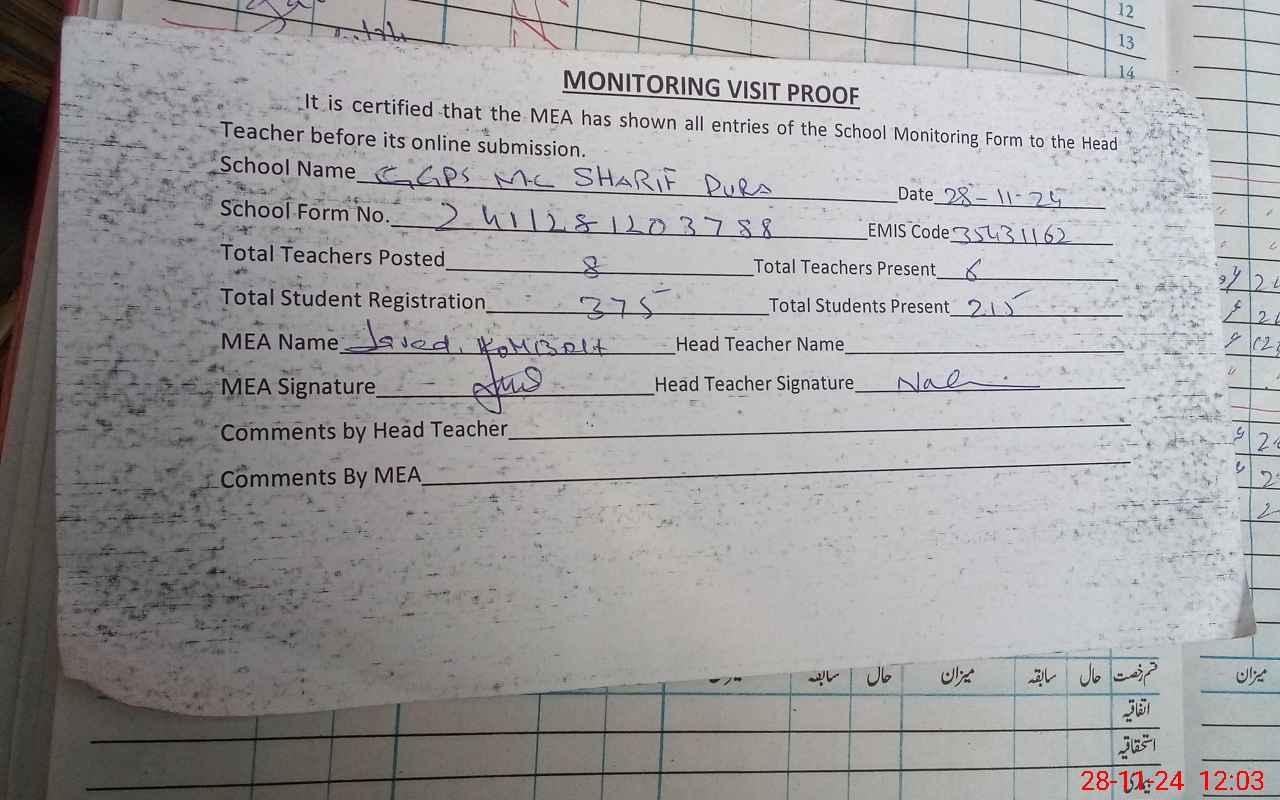 12
13
14
MONITORING VISIT PROOF
It is certified that the MEA has shown all entries of the School Monitoring Form to the Head
Teacher before its online submission.
School Name GGPS MC SHARIF PURA Date 28-11-24
School Form No. 2411281203788 EMIS Code 35431162
Total Teachers Posted 8 Total Teachers Present 6
Total Student Registration 375 Total Students Present 215
MEA Name Javed Head Teacher Name
MEA Signature Head Teacher Signature
Comments by Head Teacher
Comments By MEA
قسم رخصت حال سابقہ میزان حال سابقہ میزان
اتفاقیہ
استحقاقیہ
بیماری
28-11-24 12:03